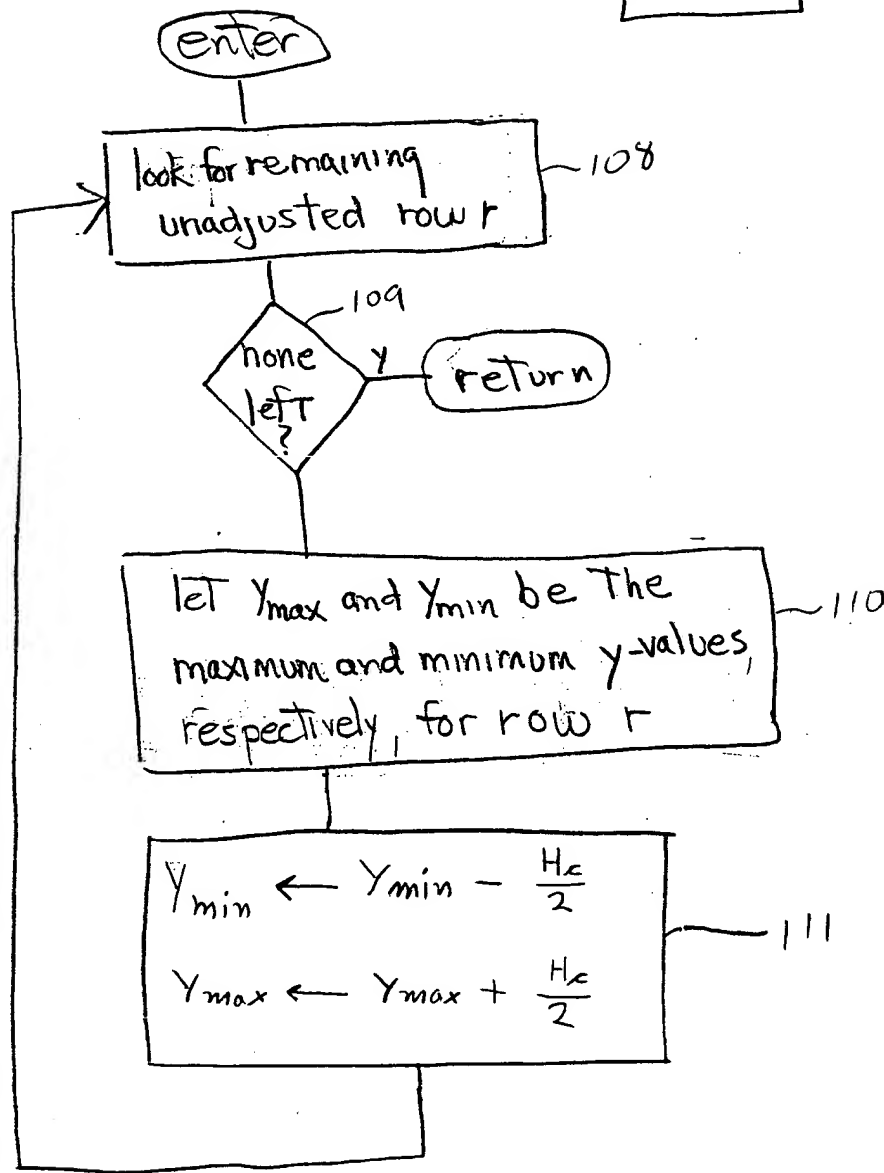 enter
look for remaining
unadjusted row r
108
109
none
left
?
y
return
let Ymax and Ymin be the
maximum and minimum y-values,
respectively, for row r
110
Ymin ← Ymin - Hc/2
Ymax ← Ymax + Hc/2
111